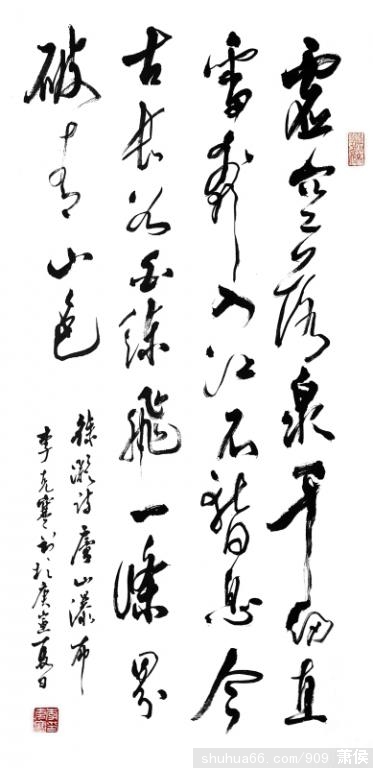 虛空落泉千仞直
雷奔入江不暫息今
古長如白練飛一條界
破青山色
徐凝詩廬山瀑布
李克寒書於庚寅夏日
shuhua66.com/909 萧侯